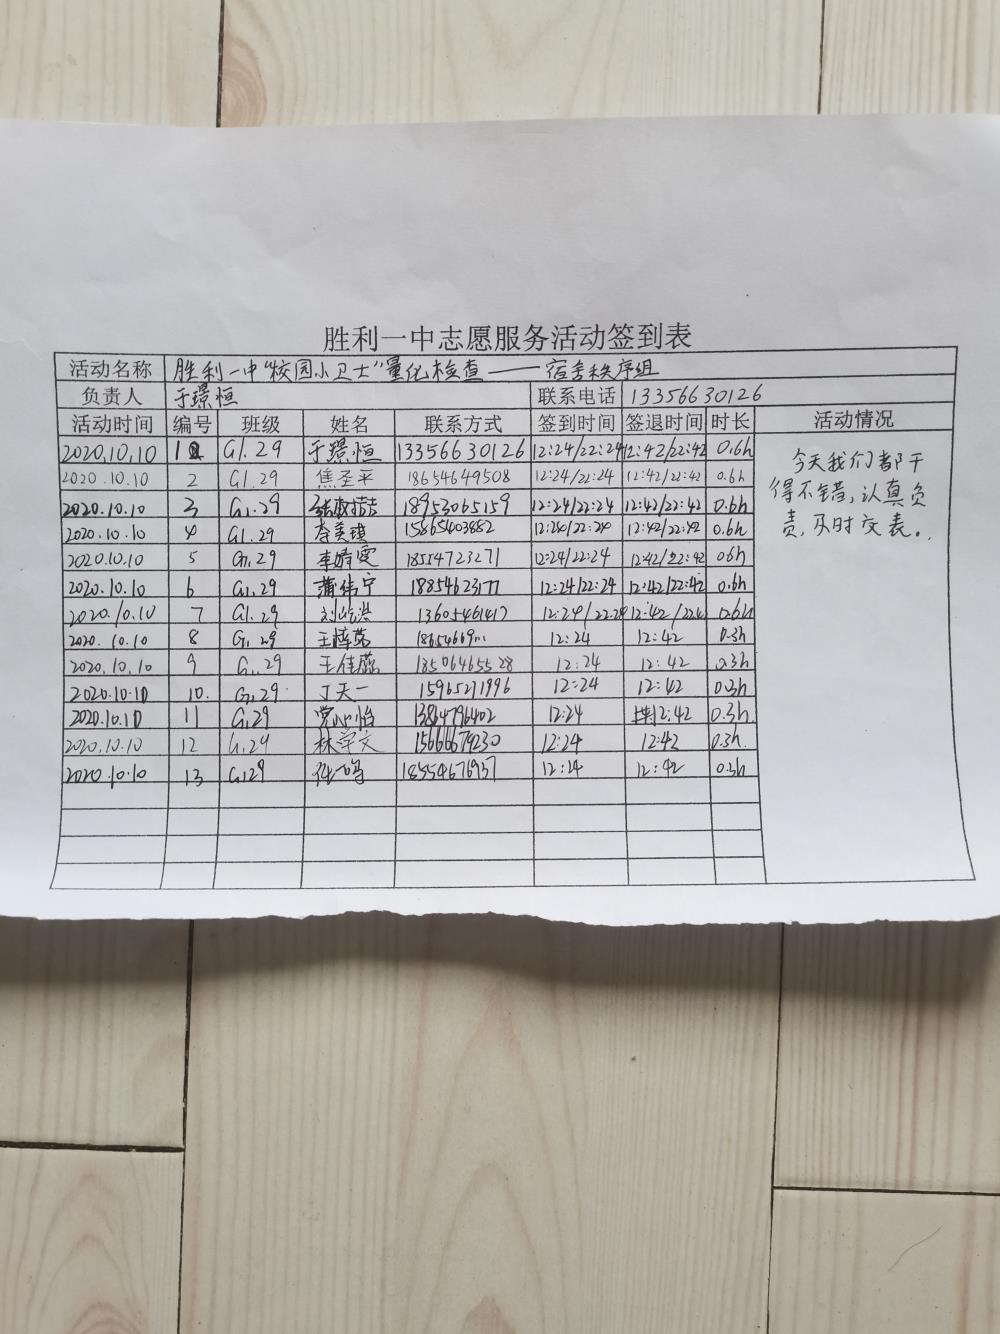 胜利一中志愿服务活动签到表
活动名称 胜利一中"校园小卫士"量化检查——宿舍秩序组
负责人 于璟恒 联系电话 13356630126
活动时间 编号 班级 姓名 联系方式 签到时间 签退时间 时长 活动情况
2020.10.10 1 G1.29 于璟恒 13356630126 12:24/22:24 12:42/22:42 0.6h
2020.10.10 2 G1.29 焦圣平 18654649508 12:24/22:24 12:42/22:42 0.6h
2020.10.10 3 G1.29 18953065159 12:24/22:24 12:42/22:42 0.6h
2020.10.10 4 G1.29 李美琪 15865403882 12:24/22:24 12:42/22:42 0.6h
2020.10.10 5 G1.29 李婧雯 18554723271 12:24/22:24 12:42/22:42 0.6h
2020.10.10 6 G1.29 蒲伟宁 18854623177 12:24/22:24 12:42/22:42 0.6h
2020.10.10 7 G1.29 刘屹洪 13605461417 12:24/22:24 12:42/22:42 0.6h
2020.10.10 8 G1.29 12:24 12:42 0.3h
2020.10.10 9 G1.29 王佳蕊 18506465528 12:24 12:42 0.3h
2020.10.10 10. G1.29 丁天一 15965271996 12:24 12:42 0.3h
2020.10.10 11 G1.29 党心怡 13864796402 12:24 12:42 0.3h
2020.10.10 12 G1.29 林学文 15666679230 12:24 12:42 0.3h.
2020.10.10 13 G1.29 张一鸣 18554676937 12:24 12:42 0.3h
今天我们都干
得不错，认真负
责，及时交表。